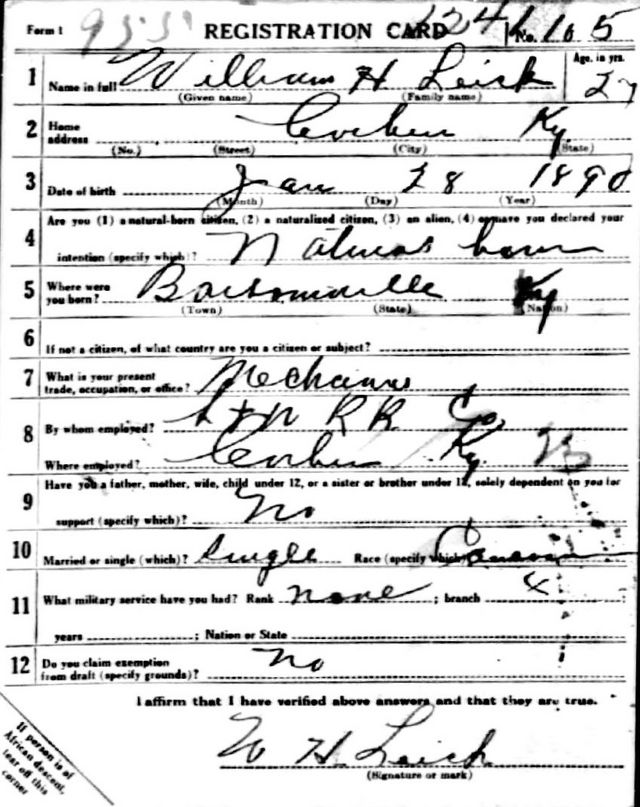 Form 1 REGISTRATION CARD No. 105
1 Name in full William H Leick Age, in yrs. 27
(Given name) (Family name)
2 Home address Corbin Ky
(No.) (Street) (City) (State)
3 Date of birth Jan 28 1890
(Month) (Day) (Year)
4 Are you (1) a natural-born citizen, (2) a naturalized citizen, (3) an alien, (4) or have you declared your
intention (specify which)? Natural born
5 Where were you born? Ky
(Town) (State) (Nation)
6 If not a citizen, of what country are you a citizen or subject?
7 What is your present trade, occupation, or office? Mechanic
8 By whom employed? L & N R R Co,
Where employed? Corbin Ky
9 Have you a father, mother, wife, child under 12, or a sister or brother under 12, solely dependent on you for
support (specify which)? No
10 Married or single (which)? Single Race (specify which)?
11 What military service have you had? Rank none ; branch x ;
years ; Nation or State
12 Do you claim exemption from draft (specify grounds)? No
I affirm that I have verified above answers and that they are true.
W H Leick
(Signature or mark)
If person is of
African descent,
tear off this
corner